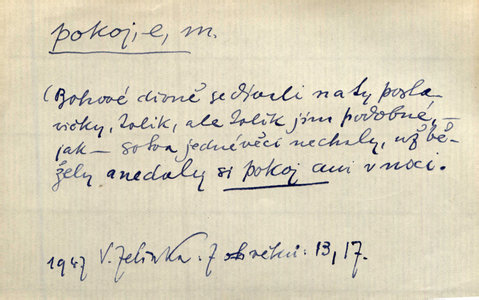 pokoj, e, m.
(Bohové divně se dívali na ty posla-
vičky, tolik, ale tolik jim podobné, –
jak – sotva jedné věci nechaly, už bě-
žely a nedaly si pokoj ani v noci.
1947 V. Jelínka. 13, 17.